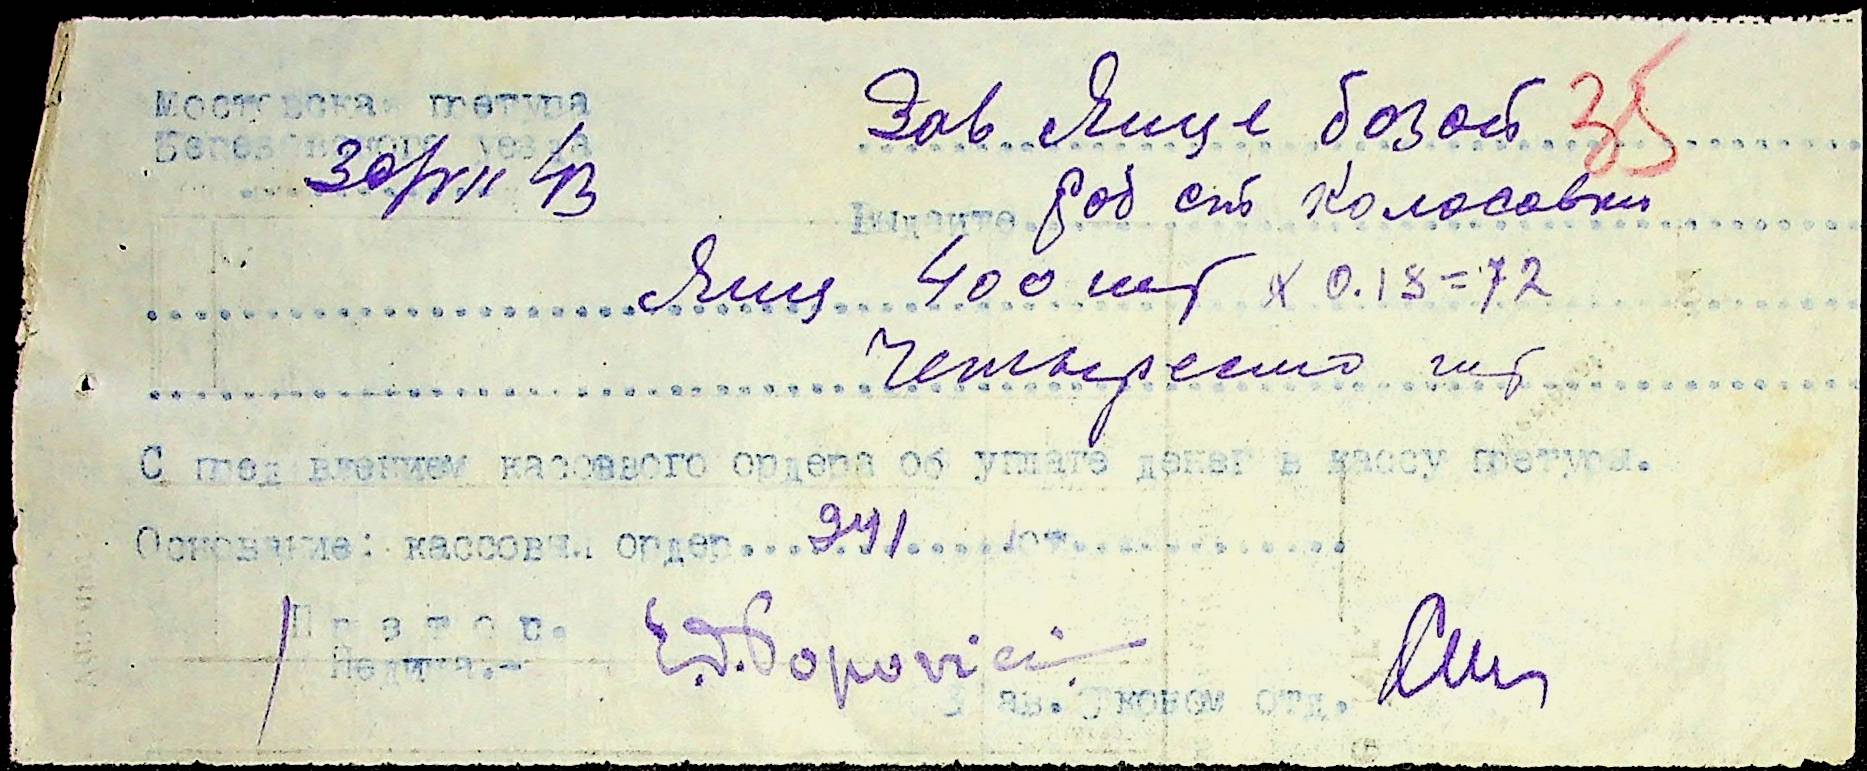 Мостовская претура
Березовского уезда
30/VII 43
Зав Яйце базой 35
Выдайте раб ст Колосовки
Яиц 400 шт х 0.18=72
Четыреста шт
С пред влением кассового ордера об уплате денег в кассу претуры.
Основание: кассовый ордер 291 от
Претор.
E.D.Popovici
Зав. Эконом отд.